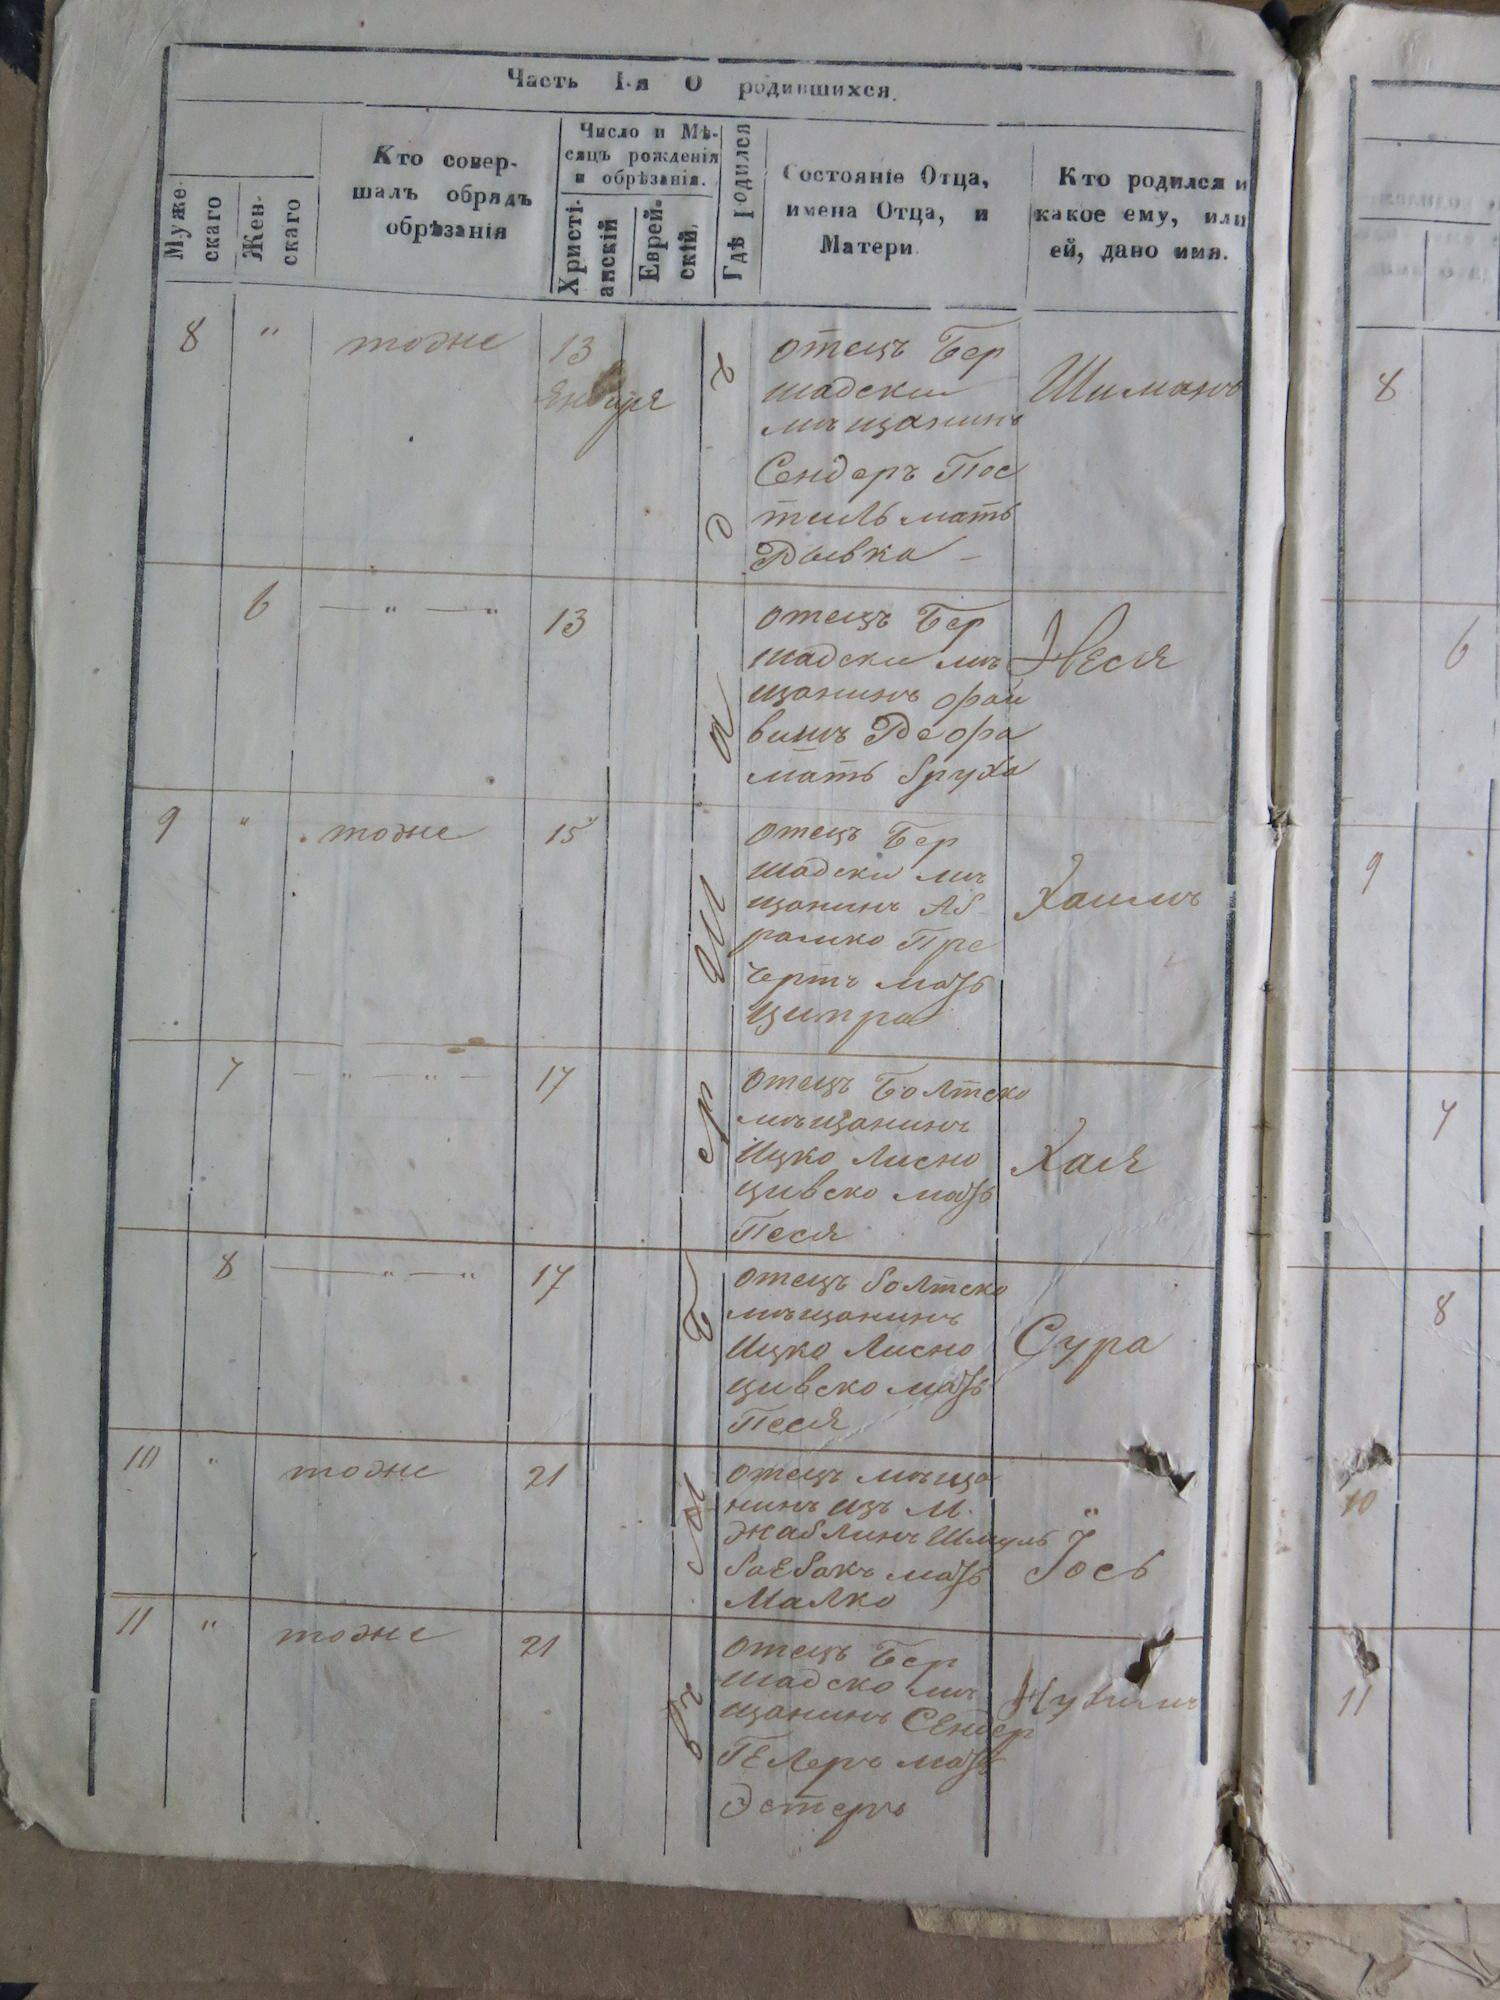 Часть I-я О родившихся.
Муже-
скаго
Жен-
скаго
Кто совер-
шалъ обрядъ
обрѣзанія
Число и Мѣ-
сяцъ рожденія
и обрѣзанія.
Христі-
анскій
Еврей-
скій.
Гдѣ родился
Состояніе Отца,
имена Отца, и
Матери
Кто родился и
какое ему, или
ей, дано имя.
8 " тоже 13
Января
отецъ Бер
шадски
мѣщанинъ
Сендеръ Пос
тиль мать
Рывка
Шиманъ
6 — " — " 13
отецъ Бер
шадски мѣ
щанинъ Фай
вишъ
мать бруха
Неся
9 " тоже 15
отецъ Бер
шадски мѣ
щанинъ Аб-
рамко Пре
черть мать
Ципра
Хаимъ
7 — " — " — 17
отецъ Болтско
мѣщанинъ
Ицко Лисно
цивско мать
Песя
Хая
8 — " — " 17
отецъ болтско
мѣщанинъ
Ицко Лисно
цивско мать
Песя
Сура
10 " тоже 21
отецъ мѣща
нинъ изъ М.
Жаблинъ Шмуль
мать
Малко
Іось
11 " тоже 21
отецъ Бер
шадско мѣ
щанинъ Сендер
Гелеръ мать
Эстеръ
Нухимъ
8
6
9
7
8
10
11